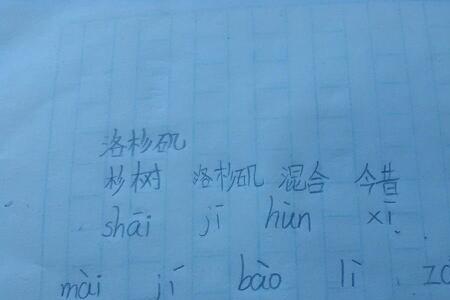 洛杉矶
杉树 洛杉矶 混合 今昔
shāi jī hùn xī
mài jí bào lì